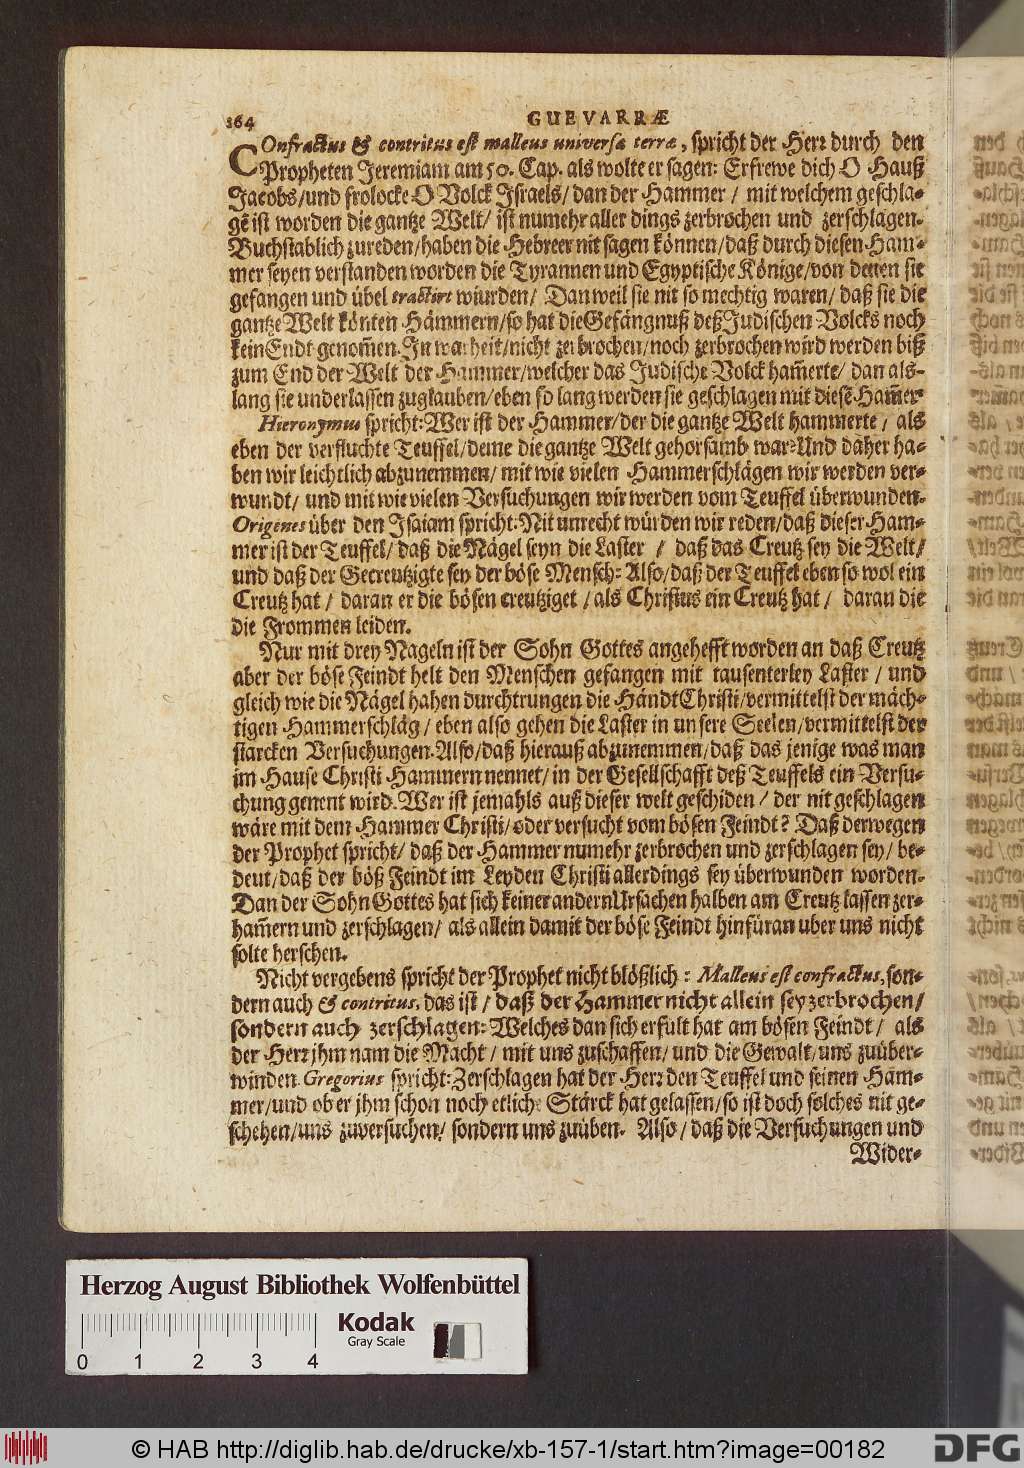 164
GUEVARRÆ
COnfractus & contritus est malleus universæ terræ, spricht der Herr durch den
Propheten Jeremiam am 50. Cap. als wolte er sagen: Erfrewe dich O Hauß
Jacobs/und frolocke O Volck Israels/ dan der Hammer / mit welchem geschla-
gẽ ist worden die gantze Welt/ ist numehr aller dings zerbrochen und zerschlagen.
Buchstablich zureden/haben die Hebreer nit sagen können/daß durch diesen Ham-
mer seyen verstanden worden die Tyrannen und Egyptische Könige/von denen sie
gefangen und übel tractirt wurden/ Dan weil sie nit so mechtig waren/ daß sie die
gantze Welt könten Hämmern/so hat die Gefängnuß deß Judischen Volcks noch
kein Endt genom̃en. In warheit/nicht zerbrochen/noch zerbrochen wird werden biß
zum End der Welt der Hammer/welcher das Judische Volck ham̃erte/ dan als-
lang sie underlassen zuglauben/eben so lang werden sie geschlagen mit diesẽ Ham̃er
Hieronymus spricht: Wer ist der Hammer/der die gantze Welt hammerte / als
eben der verfluchte Teuffel/deme die gantze Welt gehorsamb war: Und daher ha-
ben wir leichtlich abzunemmen/ mit wie vielen Hammerschlägen wir werden ver-
wundt/ und mit wie vielen Versuchungen wir werden vom Teuffel überwunden.
Origenes über den Isaiam spricht: Nit unrecht würden wir reden/daß dieser Ham-
mer ist der Teuffel/ daß die Nägel seyn die Laster / daß das Creutz sey die Welt/
und daß der Gecreutzigte sey der böse Mensch: Also/daß der Teuffel eben so wol ein
Creutz hat / daran er die bösen creutziget / als Christus ein Creutz hat / daran die
die Frommen leiden.
Nur mit drey Nageln ist der Sohn Gottes angehefft worden an daß Creutz
aber der böse Feindt helt den Menschen gefangen mit tausenterley Laster / und
gleich wie die Nägel haben durchtrungen die Händt Christi/vermittelst der mäch-
tigen Hammerschläg / eben also gehen die Laster in unsere Seelen/vermittelst der
starcken Versuchungen. Also/daß hierauß abzunemmen/daß das jenige was man
im Hause Christi Hammern nennet/ in der Gesellschafft deß Teuffels ein Versu-
chung genent wird. Wer ist jemahls auß dieser welt geschiden / der nit geschlagen
wäre mit dem Hammer Christi/ oder versucht vom bösen Feindt? Daß derwegen
der Prophet spricht/ daß der Hammer numehr zerbrochen und zerschlagen sey/ be-
deut/daß der böß Feindt im Leyden Christi allerdings sey überwunden worden.
Dan der Sohn Gottes hat sich keiner andern Ursachen halben am Creutz lassen zer-
ham̃ern und zerschlagen/ als allein damit der böse Feindt hinfüran uber uns nicht
solte herschen.
Nicht vergebens spricht der Prophet nicht blößlich: Malleus est confractus, son-
dern auch & contritus, das ist / daß der Hammer nicht allein sey zerbrochen/
sondern auch zerschlagen: Welches dan sich erfult hat am bösen Feindt / als
der Herr jhm nam die Macht / mit uns zuschaffen/ und die Gewalt/uns zuüber-
winden Gregorius spricht: Zerschlagen hat der Herr den Teuffel und seinen Ham-
mer/und ob er jhm schon noch etliche Stärck hat gelassen/so ist doch solches nit ge-
schehen/uns zuversuchen/ sondern uns zuüben. Also / daß die Versuchungen und
Wider-
Herzog August Bibliothek Wolfenbüttel
Kodak
Gray Scale
0 1 2 3 4
© HAB http://diglib.hab.de/drucke/xb-157-1/start.htm?image=00182
DFG